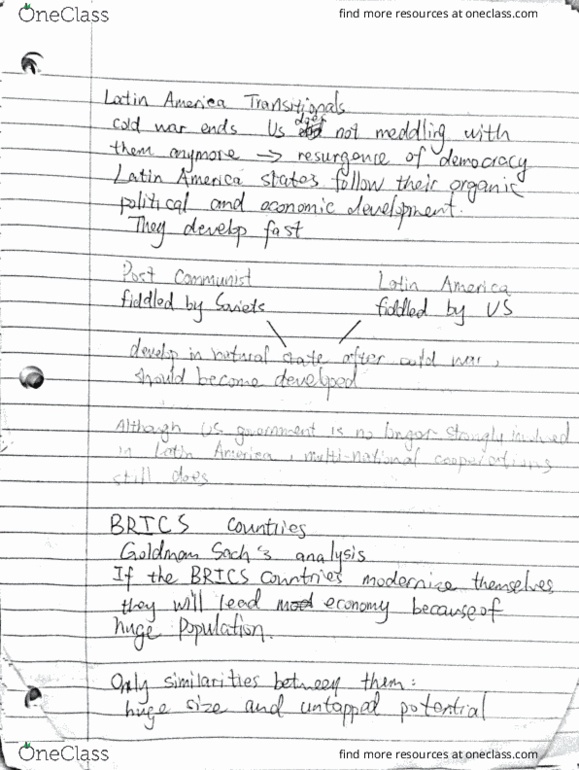 OneClass
find more resources at oneclass.com
Latin America Transitionals
cold war ends US does not meddling with
them anymore → resurgence of democracy
Latin America states follow their organic
political and economic development.
They develop fast
Post Communist
fiddled by Soviets
Latin America
fiddled by US
develop in natural state after cold war,
should become developed
Although US government is no longer strongly involved
in Latin America, multi-national cooperations
still does
BRICS Countries
Goldman Sach's analysis
If the BRICS Countries modernize themselves
they will lead economy because of
huge population.
Only similarities between them:
huge size and untapped potential
OneClass
find more resources at oneclass.com